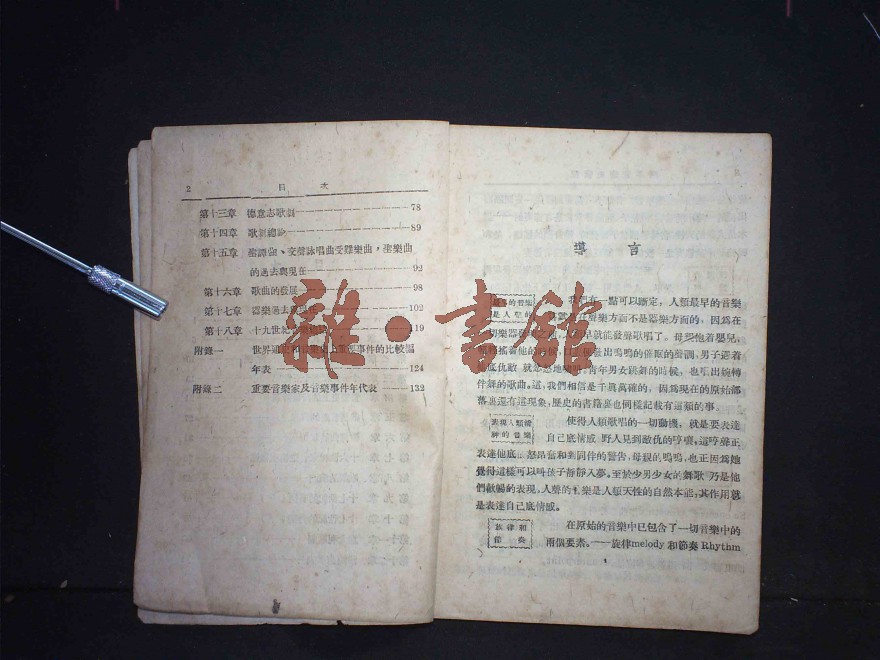 2 目次
第十三章 德意志歌劇 78
第十四章 歌劇總論 89
第十五章 聖譚曲、交聲詠唱曲受難樂曲,聖樂曲
的過去與現在 92
第十六章 歌曲的發展 98
第十七章 器樂過去與現在 102
第十八章 十九世紀音樂 119
附錄一 世界通史和音樂史上重要事件的比較編
年表 124
附錄二 重要音樂家及音樂事件年代表 132
導言
的音樂
是人聲的
我們有一點可以斷定,人類最早的音樂
就是在聲樂方面不是器樂方面的,因為在
一切樂器發明之前,早就能發聲歌唱了。母要抱着嬰兒,
搖着他的時候,發出嗚嗚的催眠的聲調,男子遇着
他底仇敵,就怒,青年男女跳舞的時候,也引出婉轉
伴舞的歌曲。這,我們相信是千真萬確的,因為現在的原始部
落裏還有這現象,歷史的書籍裏也同樣記載有這類的事。
表現人類精
神的音樂
使得人類歌唱的一切動機,就是要表達
自己底情感 野人見到敵仇的哼嚷,這哼聲正
表達他底 怒昂奮和對同伴的警告,母親的嗚嗚,也正因為她
覺得這樣可以叫孩子靜靜入夢。至於少男少女的舞歌 乃是他
們歡暢的表現,人聲的 樂是人類天性的自然本能,其作用就
是表達自己底情感。
旋律和
節奏
在原始的音樂中已包含了一切音樂中的
兩個要素。——旋律melody 和節奏 Rhythm
雜·書館